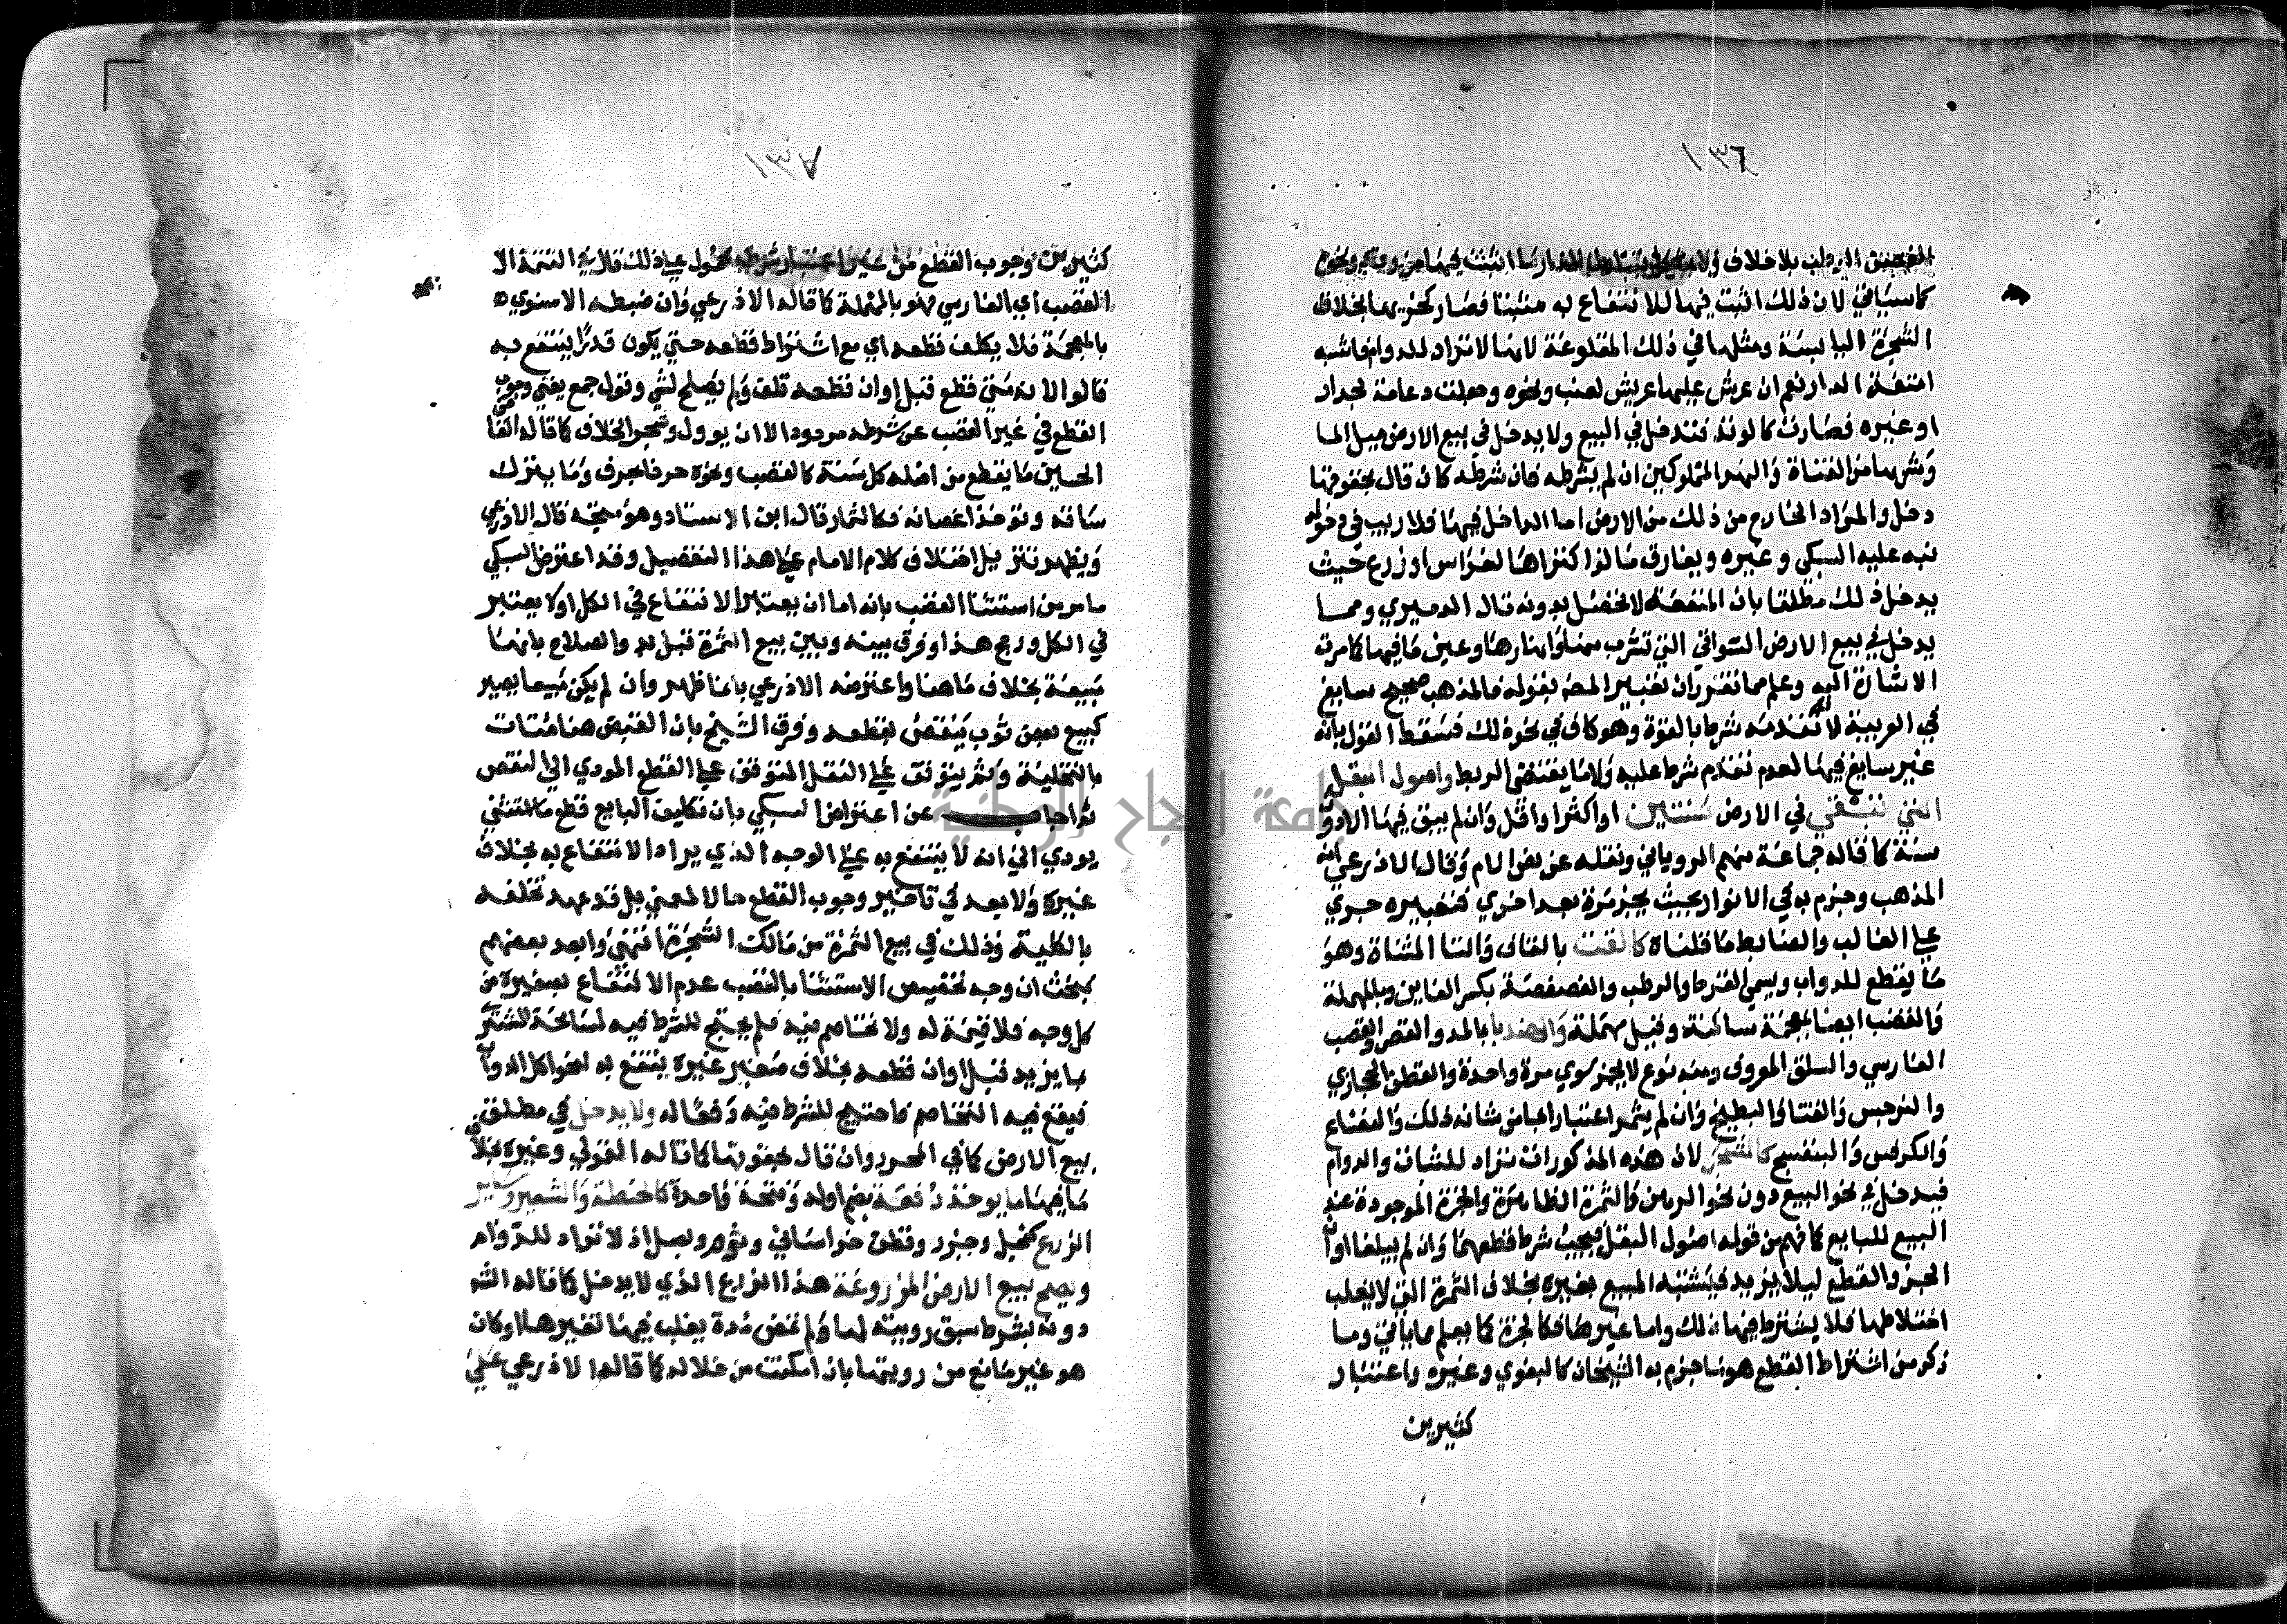 ١٣٦
الغصن الرطب بلا خلاف ولا
كاسياتي لان ذلك اثبت فيها للانتفاع به مثبتا فصار كجزيها بخلاف
الشجرة اليابسة ومثلها في ذلك المقلوعة لانها لا تراد للدوام فاشبه
امتعة الدار نعم ان عرش عليها عريش لعنب ونحوه وجعلت دعامة لجدار
او غيره فصارت كالوتد فتدخل في البيع ولا يدخل في بيع الارض مسيل الما
وشربها من القناة والنهر المملوكين ان لم يشرطه فان شرطه كان قال بحقوقها
دخل والمراد الخارج من ذلك من الارض اما الداخل فيها فلا ريب في دخوله
نبه عليه السبكي وغيره ويفارق ما لو اكتراها لغراس او زرع حيث
يدخل ذلك مطلقا بان المنفعة لا تحصل بدونه قال الدميري ومما
يدخل في بيع الارض السواقي التي تشرب منها وانهارها وعين ما فيها كما مرت
الاشارة اليه وعلم مما تقرر ان تعبير المص بقوله فالمذهب صحيح سايغ
في العربية لانه تقدمه شرط بالقوة وهو كاف في نحو ذلك فسقط القول بانه
غير سايغ فيها لعدم تقدم شرط عليه ولا ما يقتضي الربط واصول البقل
التي تبقي في الارض سنتين او اكثر او اقل وان لم يبق فيها الا دون
سنة كما قاله جماعة منهم الروياني ونقله عن نص الام وقال الاذرعي انه
المذهب وجزم به في الانوار بحيث يجز مرة بعد اخري فتعبيره جري
علي الغالب والضابط ما قلناه كالقت بالقاف والتا المثناة وهو
ما يقطع للدواب ويسمي القرط والرطب والفصفصة بكسر الفاين وبالمهملة
والقضب ايضا بمعجمة ساكنة وقيل مهملة والهندبا بالمد والقصر والقصب
الفارسي والسلق المعروف ومنه نوع لا يجز سوي مرة واحدة والقطن الحجازي
والنرجس والقثا والبطيخ وان لم يثمر اعتبارا بما من شانه ذلك والنعناع
والكرفس والبنفسج كالشجر لان هذه المذكورات تراد للثبات والدوام
فيدخل في نحو البيع دون نحو الرهن والثمرة الظاهرة والجزة الموجودة عند
البيع للبايع كما فهم من قوله اصول البقل فيجب شرط قطعهما وان لم يبلغا اوان
الجز والقطع ليلا يزيد فيشتبه المبيع بغيره بخلاف الثمرة التي لا يغلب
اختلاطها فلا يشترط فيها ذلك واما غيرها فكالجزة كما يعلم مما ياتي وما
ذكر من اشتراط القطع هو ما جزم به الشيخان كالبغوي وغيره واعتبار
كثيرين
١٣٧
كثيرين وجوب القطع من غير اعتبار شرطه محمول علي ذلك قال في التتمة الا
القصب اي الفارسي فهو بالمهملة كما قاله الاذرعي وان ضبطه الاسنوي
بالمعجمة فلا يكلف قطعه اي مع اشتراط قطعه حتي يكون قدرا ينتفع به
قالوا لانه متي قطع قبل اوان قطعه تلف ولم يصلح لشي وقول جمع يغني وجوب
القطع في غير القصب عن شرطه مردود الا ان يوول وشجر الخلاف كما قاله القا
الحسين ما يقطع من اصله كل سنة كالقصب ونحوه حرفا بحرف وما يترك
ساقه وتوخذ اغصانه فكالثمار قال ابن الاستاذ وهو متجه قال الاذرعي
ويظهر تنزيل اختلاف كلام الامام علي هذا التفصيل وقد اعترض السبكي
ما مر من استثنا القصب بانه اما ان يعتبر الانتفاع في الكل او لا يعتبر
في الكل ورجح هذا وفرق بينه وبين بيع الثمرة قبل بدو الصلاح بانها
مبيعة بخلاف ما هنا واعترضه الاذرعي بانها ظهر وان لم يكن مبيعا يصير
كبيع بعض ثوب ينقص بقطعه وفرق الشيخ بان القبض هنا متات
بالتخلية وثم يتوقف علي النقل المتوقف علي القطع المودي الي النقص
ثم اجاب عن اعتراض السبكي بان تكليف البايع قطع ما استثني
يودي الي انه لا ينتفع به علي الوجه الذي يراد الانتفاع به بخلاف
غيره ولا بعد في تاخير وجوب القطع حالا لمعني بل قد عهد تخلفه
بالكلية وذلك في بيع الثمرة من مالك الشجرة انتهي وابعد بعضهم
بحث ان وجه تخصيص الاستثنا بالقصب عدم الانتفاع بصغيره من
كل وجه فلا قيمة له ولا تخاصم فيه فلم يحتج للشرط فيه لمسامحة المشتري
بما يزيد قبل اوان قطعه بخلاف صغير غيره ينتفع به لنحو اكل الدواب
فيقع فيه التخاصم فاحتيج للشرط فيه دفعا له ولا يدخل في مطلق
بيع الارض كما في المحرر وان قال بحقوقها كما قاله القمولي وغيره بخلاف
ما فيها ما يوخذ دفعة بضم اوله وفتحه واحدة كالحنطة والشعير وساير
الزرع كفجل وجزر وقطن خراساني وثوم وبصل اذ لا تراد للدوام
ويصح بيع الارض المزروعة هذا الزرع الذي لا يدخل كما قاله الشر
دونه بشرط سبق رويته لها ولم تمض مدة يغلب فيها تغيرها او كان
هو غير مانع من رويتها بان امكنت من خلاله كما قاله الاذرعي علي
جامعة النجاح الوطنية